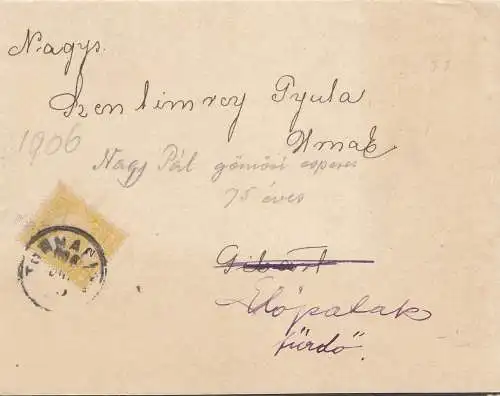 Nagys.
Szentimrey Gyula
Urnak
1906
Nagy Pál gömöri esperes
75 éves
Előpatak
fürdő.